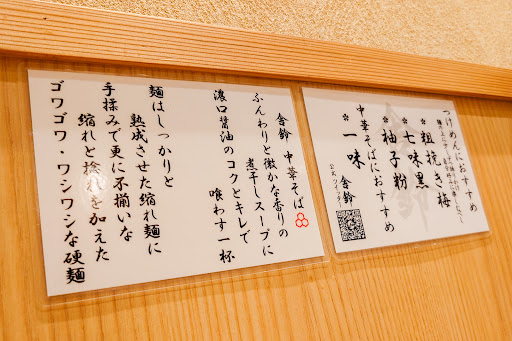 つけめんにおすすめ
粗挽き梅
七味黒
柚子粉
中華そばにおすすめ
一味
舎鈴
公式ツイッター
舎鈴 中華そば
ふんわりと微かな香りの
煮干しスープに
濃口醤油のコクとキレで
喰わす一杯
麺はしっかりと
熟成させた縮れ麺に
手揉みで更に不揃いな
縮れと捻れを加えた
ゴワゴワ・ワシワシな硬麺